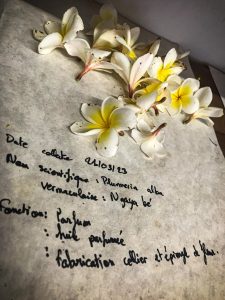 Date collecte 21/03/23
Nom scientifique : Plumeria alba
vernaculaire : Nguya bé
Fonction : Parfum
: huile parfumée
: fabrication collier et épingl à fleur.